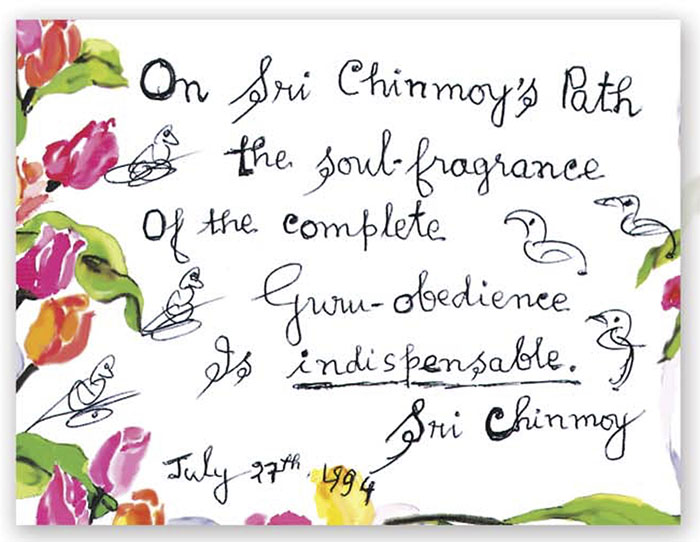 On Sri Chinmoy's Path
the soul-fragrance
Of the complete
Guru-obedience
Is indispensable.
Sri Chinmoy
July 27th 1994